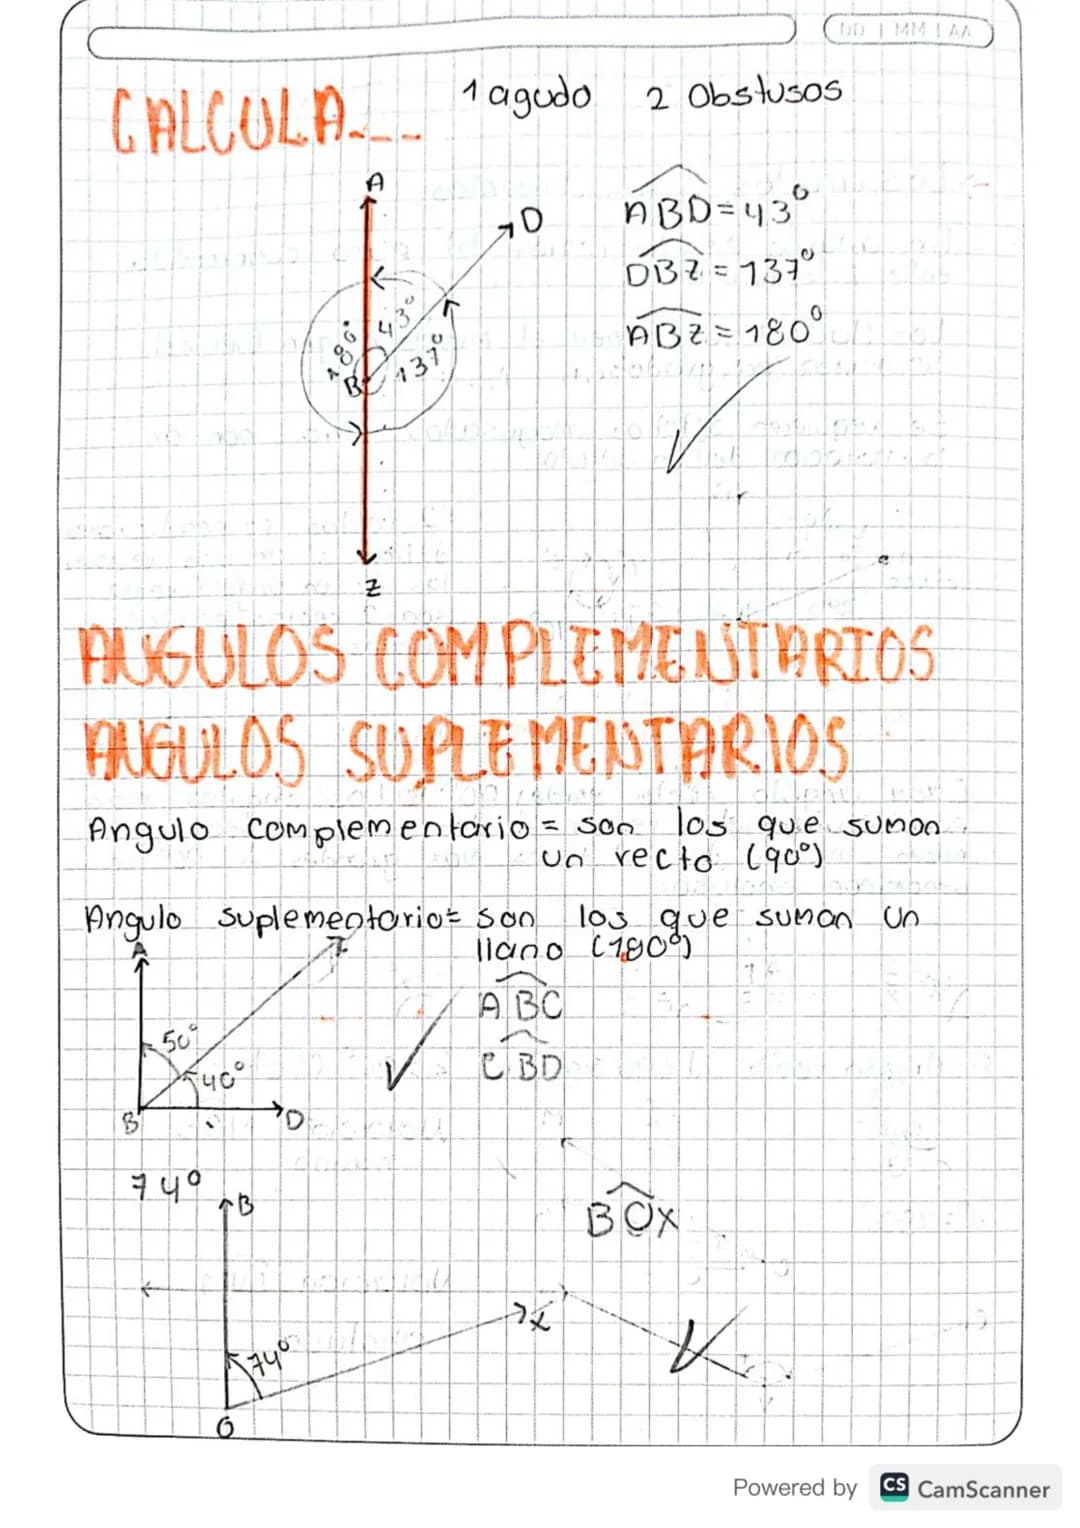 DD | MM | AA
CALCULA---
1 agudo 2 Obstusos
A
D
ABD = 43°
DBZ = 137°
ABZ = 180°
43°
180°
B
137°
Z
ANGULOS COMPLEMENTARIOS
ANGULOS SUPLEMENTARIOS
Angulo complementario = son los que suman
un recto (90°)
Angulo suplementario = son los que suman un
llano (180°)
A
ABC
50°
CBD
40°
B
D
74°
B
BOX
X
74°
O
Powered by CS CamScanner